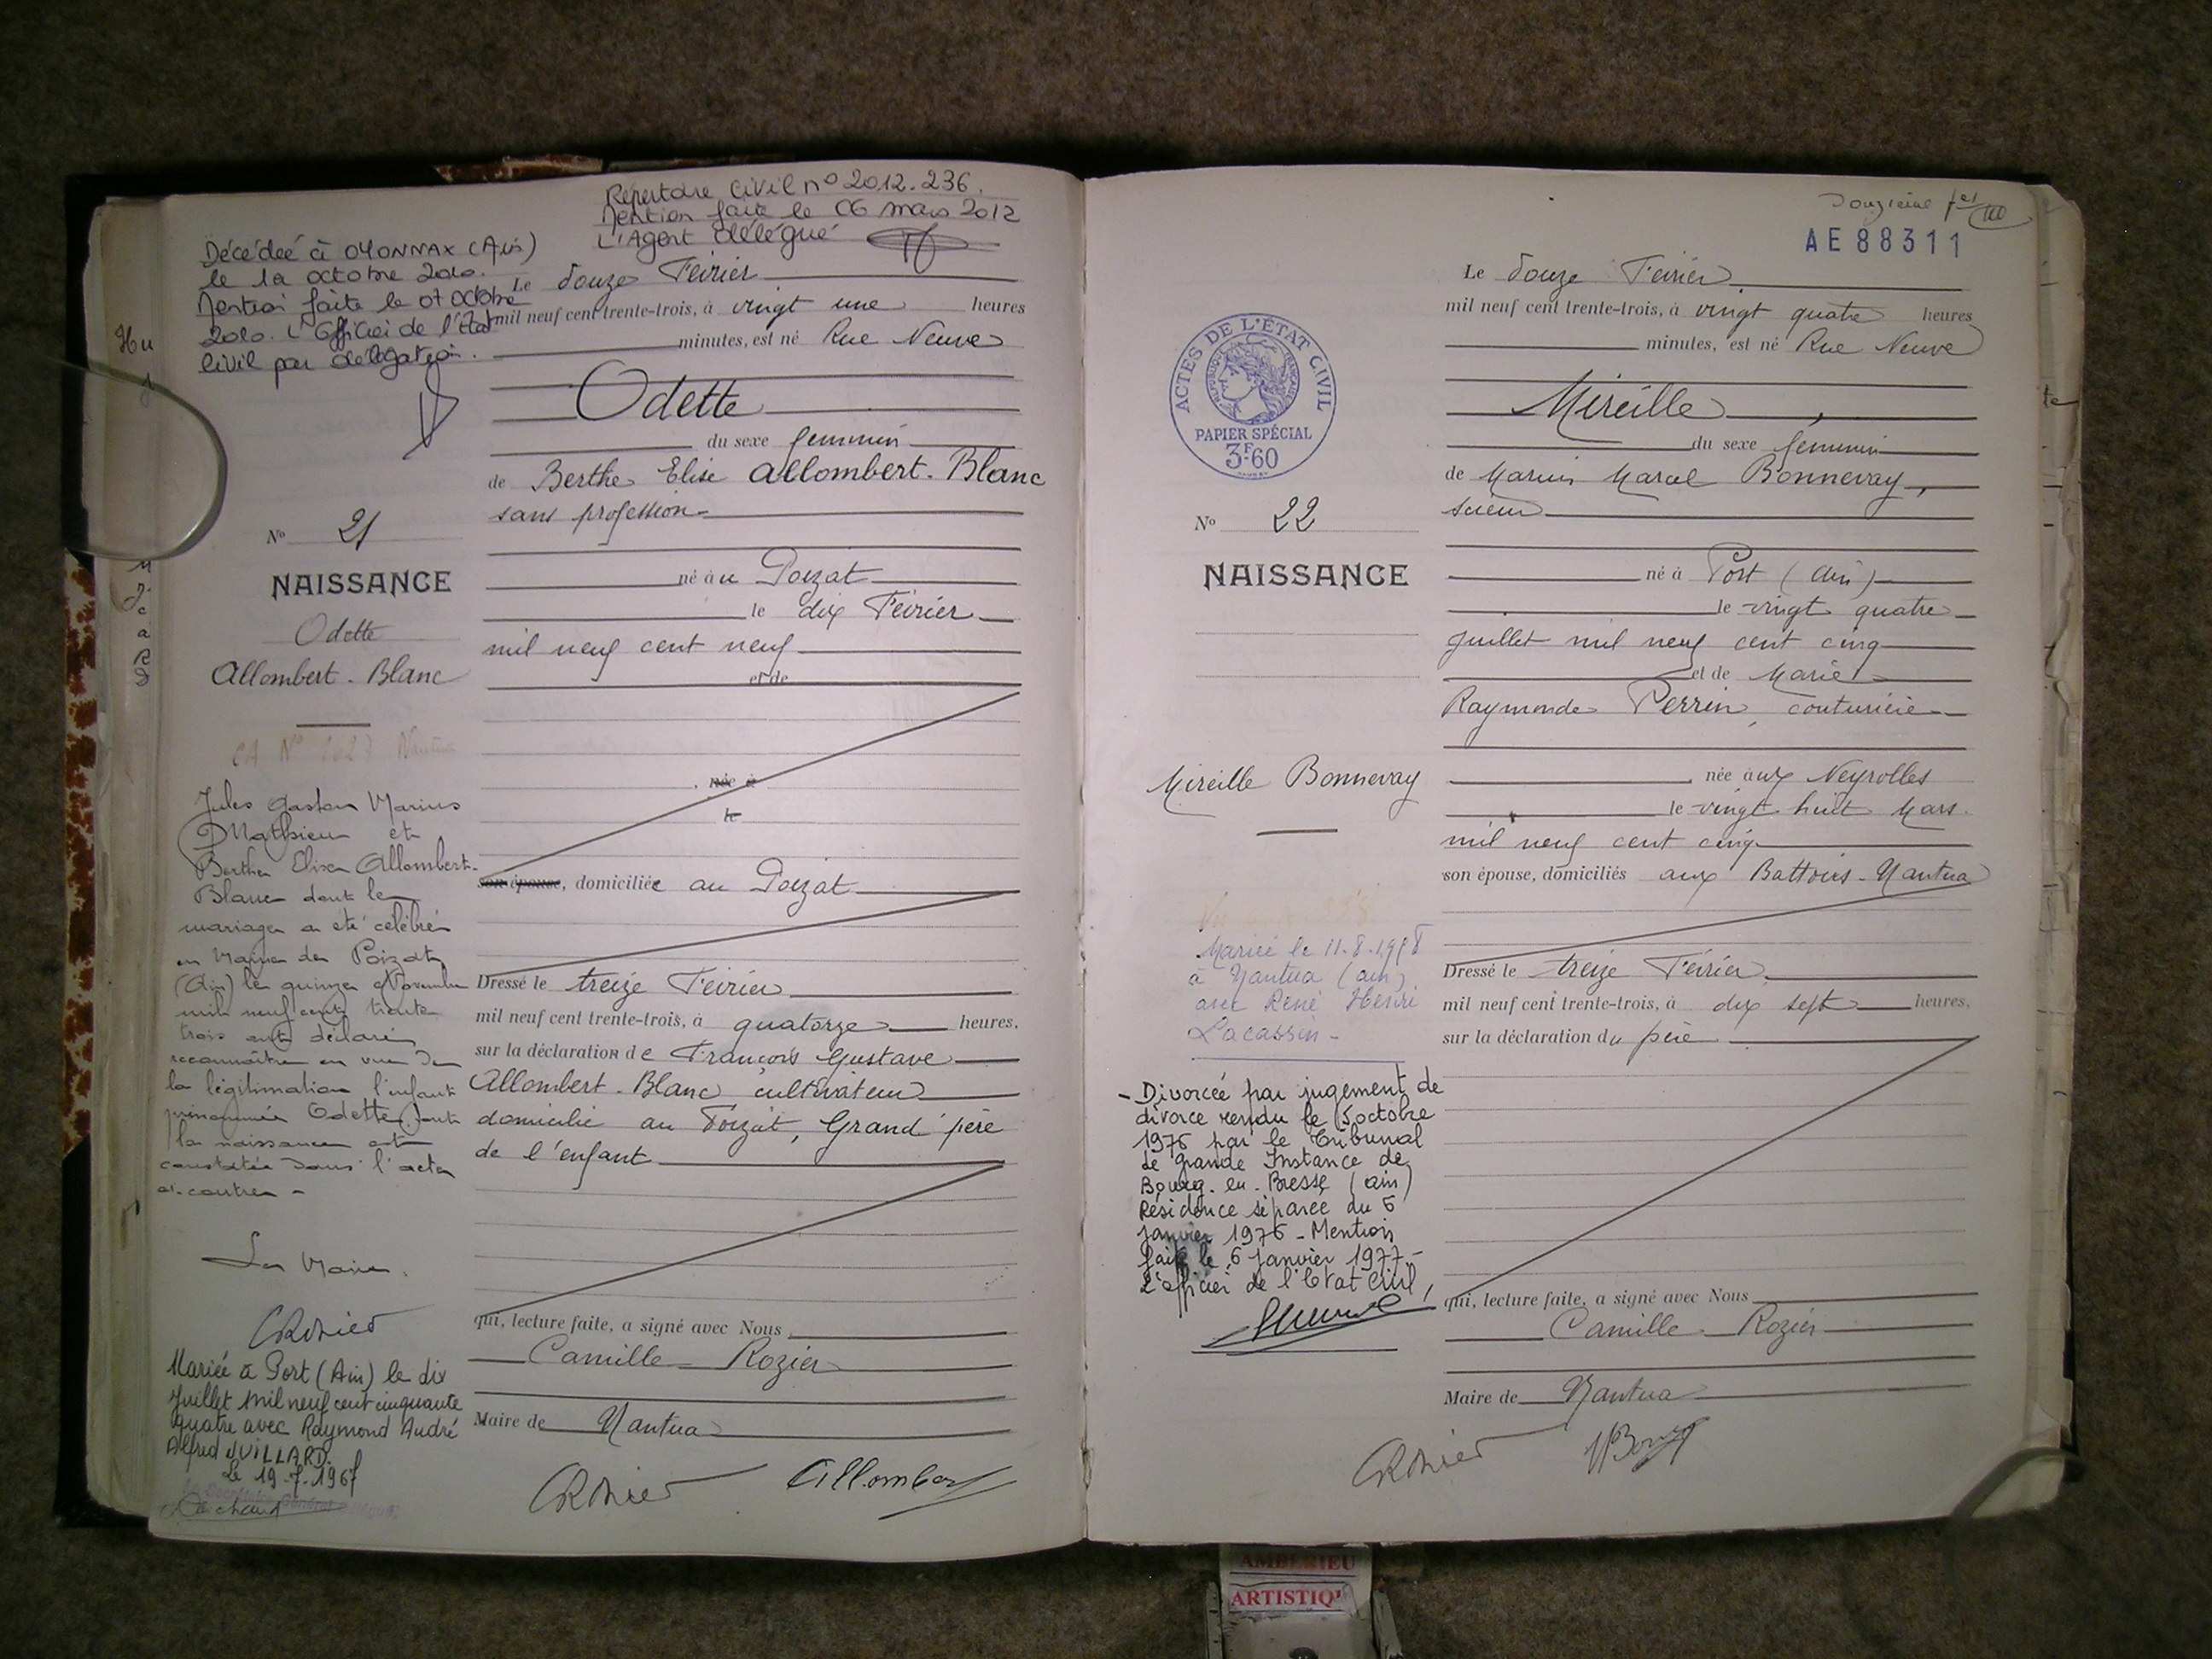 Répertoire Civil n° 2012.236.
Mention faite le 06 mars 2012
L'Agent délégué
Décédée à OYONNAX (Ain)
le 1a octobre 2020.
Mention faite le 07 octobre
2020. L'Officier de l'Etat
Civil par délégation.
Le douze Février
mil neuf cent trente-trois, à vingt une heures
minutes, est né Rue Neuve
Odette
du sexe féminin
de Berthe Elise Allombert-Blanc
sans profession
né à u Poizat
le dix Février
mil neuf cent neuf
et de
née à
le
son épouse, domiciliée au Poizat
Dressé le treize Février
mil neuf cent trente-trois, à quatorze heures,
sur la déclaration de François Gustave
Allombert-Blanc cultivateur
domicilié au Poizat, Grand père
de l'enfant
qui, lecture faite, a signé avec Nous,
Camille Rozier
Maire de Nantua
CRozier Allombert
N° 21
NAISSANCE
Odette
Allombert-Blanc
Jules Gaston Marius
Mathieu et
Berthe Elisa Allombert-
Blanc dont le
mariage a été célébré
en Mairie de Poizat
(Ain) le quinze Novembre
mil neuf cent trente
trois ont déclaré
reconnaître en vue de
la légitimation l'enfant
prénommée Odette dont
la naissance est
constatée dans l'acte
ci-contre -
Le Maire.
CRozier
Mariée à Port (Ain) le dix
Juillet mil neuf cent cinquante
quatre avec Raymond André
Alfred JUILLARD.
Le 19-7-1967
Douzième fet
AE88311
Le douze Février
mil neuf cent trente-trois, à vingt quatre heures
minutes, est né Rue Neuve
Mireille
du sexe féminin
de Marius Marcel Bonnevay,
scieur
né à Port (Ain)
le vingt quatre
Juillet mil neuf cent cinq
et de Marie
Raymonde Perrin, couturière
née à ux Neyrolles
le vingt huit Mars
mil neuf cent cinq
son épouse, domiciliés aux Battoirs-Nantua
Dressé le treize Février
mil neuf cent trente-trois, à dix sept heures,
sur la déclaration du père
qui, lecture faite, a signé avec Nous
Camille Rozier
Maire de Nantua
CRozier
ACTES DE L'ÉTAT CIVIL
RÉPUBLIQUE FRANÇAISE
PAPIER SPÉCIAL
3F60
N° 22
NAISSANCE
Mireille Bonnevay
Mariée le 11-8-1958
à Nantua (ain)
avec René Henri
Lacassin -
- Divorcée par jugement de
divorce rendu le 15 octobre
1976 par le Tribunal
de grande Instance de
Bourg-en-Bresse (ain)
Résidence séparée du 6
janvier 1976 - Mention
faite le 6 Janvier 1977 -
L'officier de l'Etat Civil,
AMBERIEU
ARTISTIQU